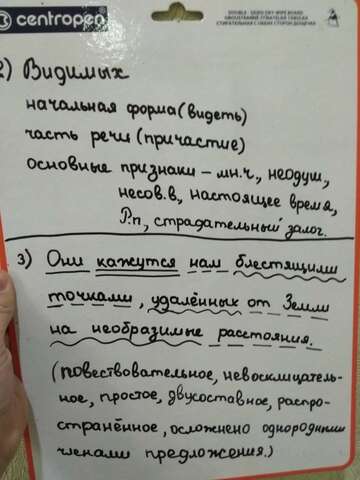 centropen
DOUBLE-SIDED DRY-WIPE BOARD
2) Видимых
начальная форма (видеть)
часть речи (причастие)
основные признаки – мн.ч., неодуш.,
несов.в., настоящее время,
Р.п, страдательный залог.
3) Они кажутся нам блестящими
точками, удалённых от Земли
на необразимые расстояния.
(повествовательное, невосклицатель-
ное, простое, двусоставное, распро-
странённое, осложнено однородными
членами предложения.)